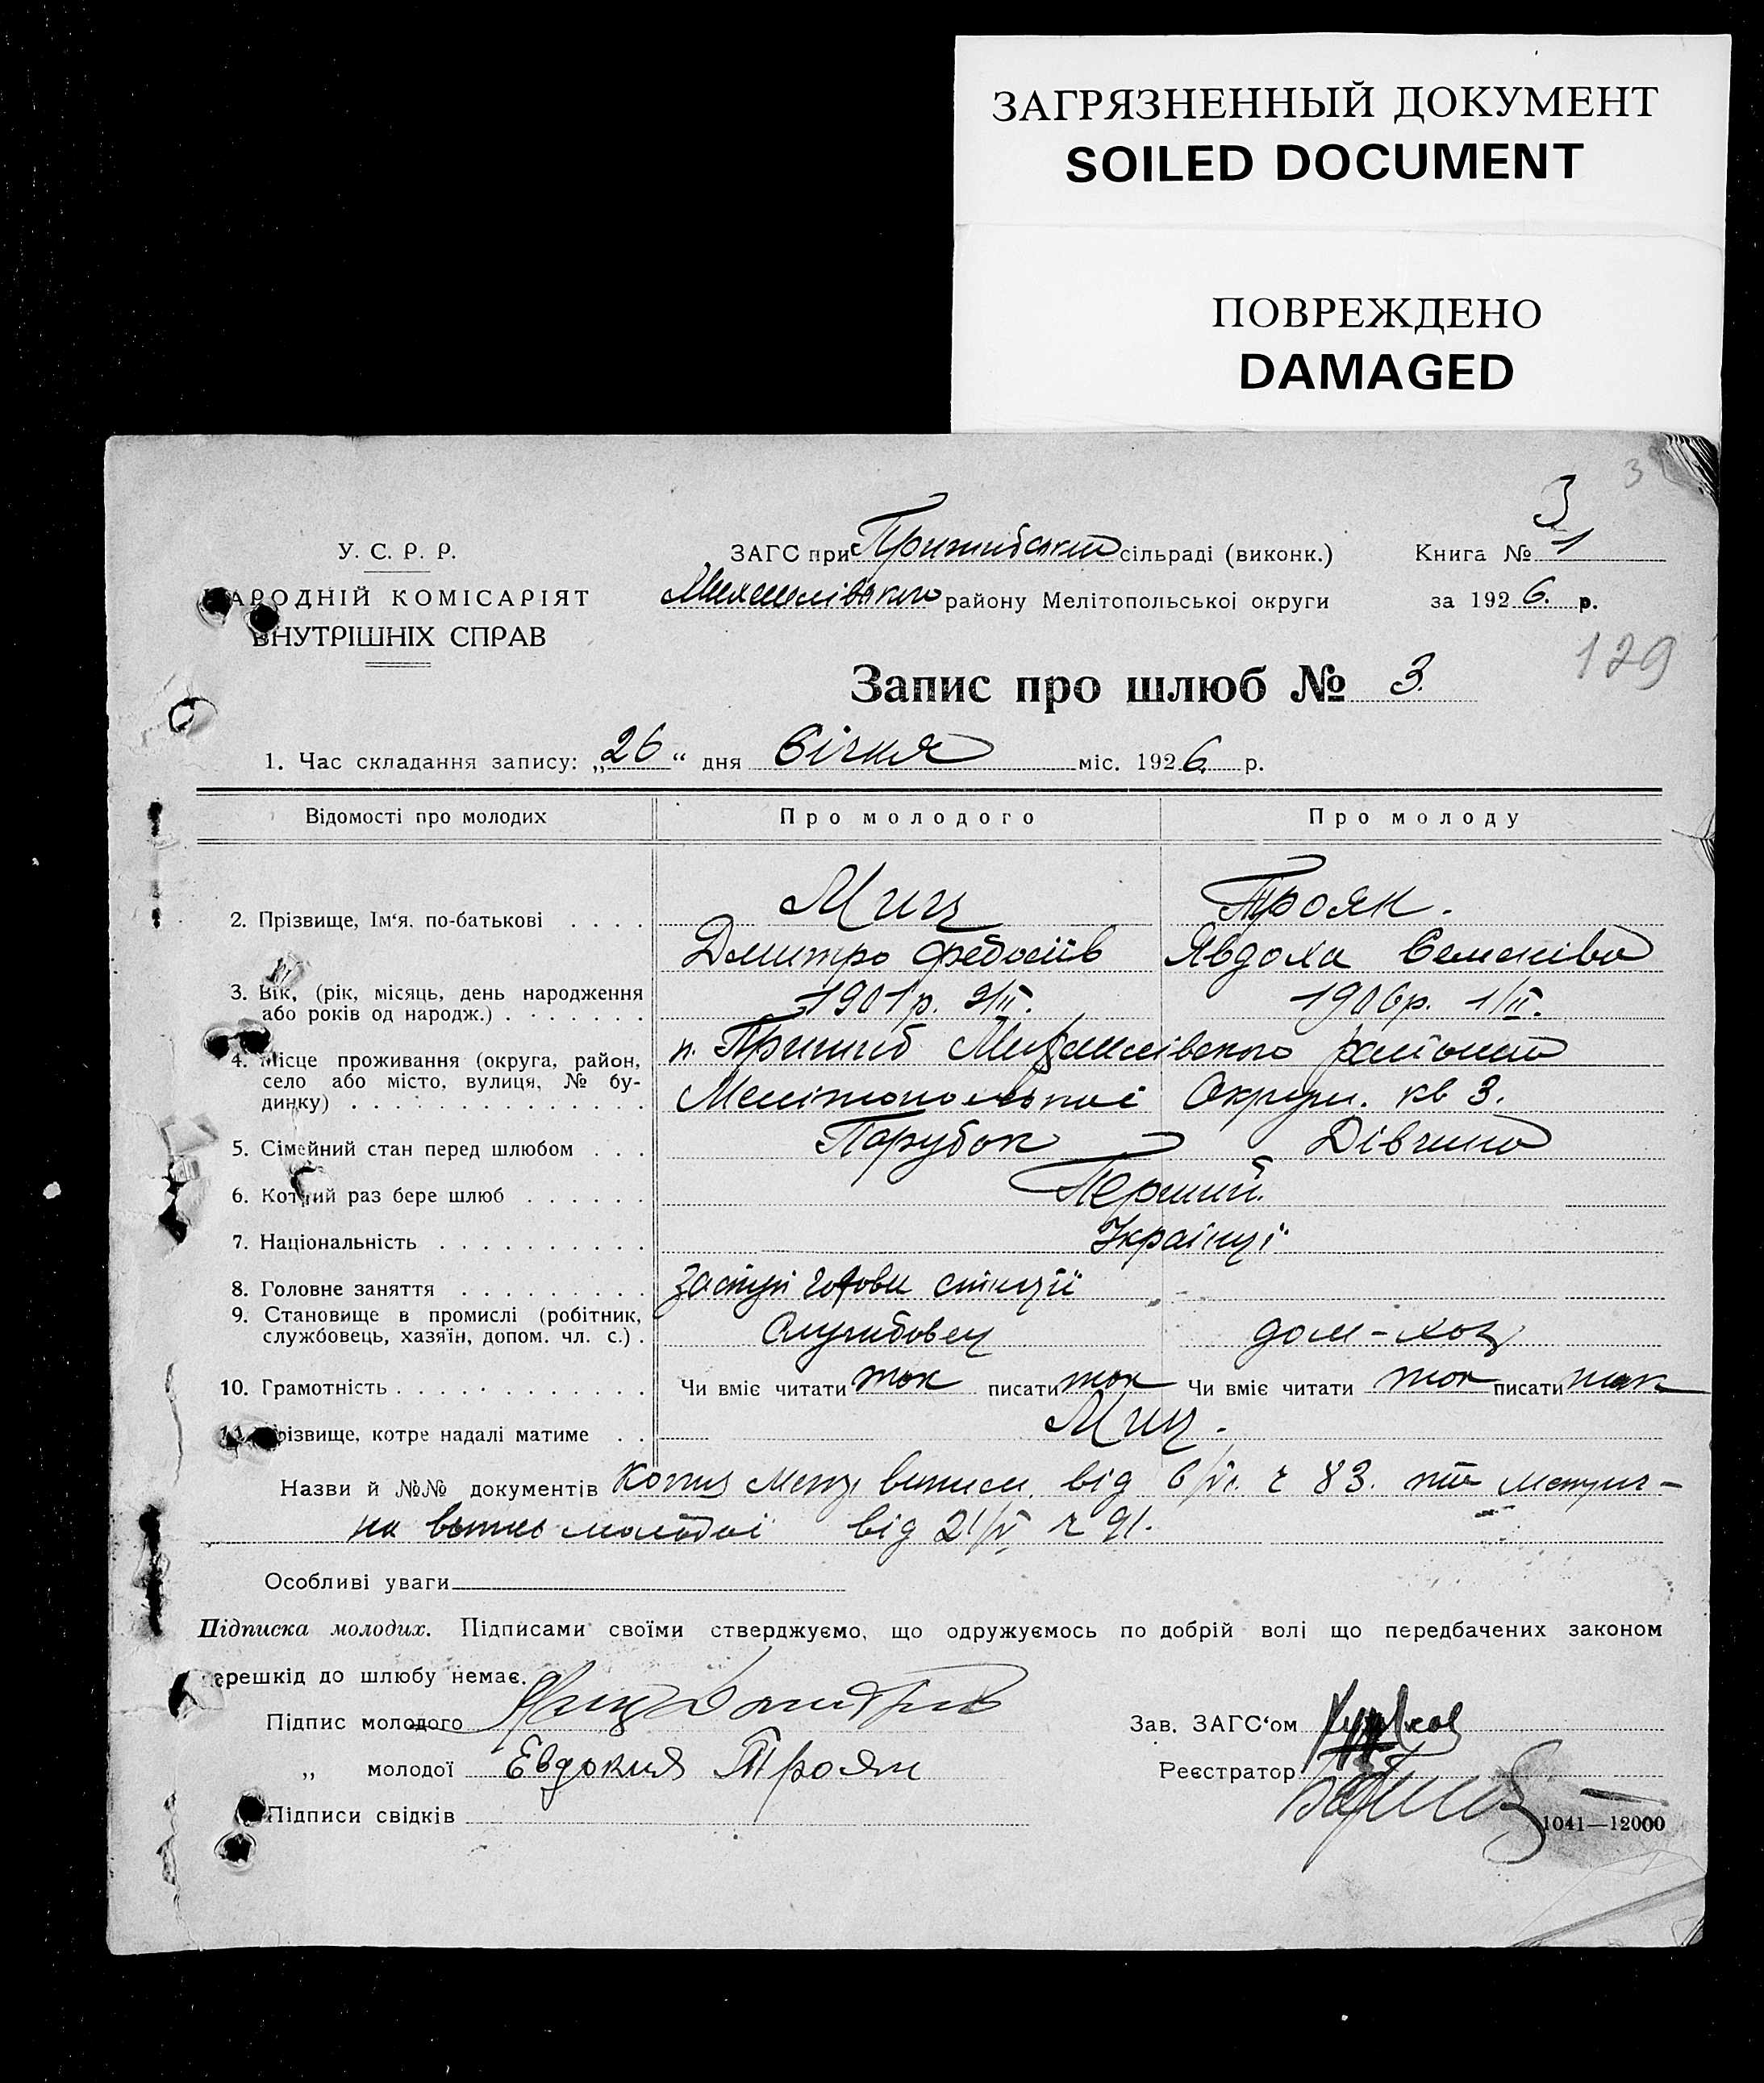 ЗАГРЯЗНЕННЫЙ ДОКУМЕНТ
SOILED DOCUMENT
ПОВРЕЖДЕНО
DAMAGED
3
3
У. С. Р. Р.
ЗАГС при Пришибський сільраді (виконк.)
Книга № 1
НАРОДНІЙ КОМІСАРІЯТ
Михайлівського району Мелітопольської округи
за 1926. р.
ВНУТРІШНІХ СПРАВ
129
Запис про шлюб № 3.
1. Час складання запису: „26“ дня Січня міс. 1926. р.
Відомості про молодих
Про молодого
Про молоду
2. Прізвище, Ім'я, по-батькові . . . .
Миц
Троян.
Дмитро Федосіїв
Явдоха Семенівна
3. Вік, (рік, місяць, день народження
або років од народж.) . . . . . . .
1901р. 2/II.
1906р. 1/II.
4. Місце проживання (округа, район,
село або місто, вулиця, № бу-
динку) . . . . . . . . . . . . . .
п. Пришиб Михайлівського району
Мелітопольської Округи. кв 3.
5. Сімейний стан перед шлюбом . . .
Парубок
Дівчина
6. Котрий раз бере шлюб . . . . . .
Перший.
7. Національність . . . . . . . . . .
Українці
8. Головне заняття . . . . . . . . .
заступ голови станції
9. Становище в промислі (робітник,
службовець, хазяїн, допом. чл. с.) .
Службовец
дом-хоз
10. Грамотність . . . . . . . . . . . .
Чи вміє читати так писати так
Чи вміє читати так писати так
11. Прізвище, котре надалі матиме . .
Миц.
Назви й №№ документів Копия метр. виписи. від 6/VI. ч 83. та метрич-
на выпис молодої від 21/V ч 91.
Особливі уваги
Підписка молодих. Підписами своїми стверджуємо, що одружуємось по добрій волі що передбачених законом
перешкід до шлюбу немає.
Підпис молодого Миц
Зав. ЗАГС'ом
„ молодої Евдокия Троян
Реєстратор
Підписи свідків
1041—12000